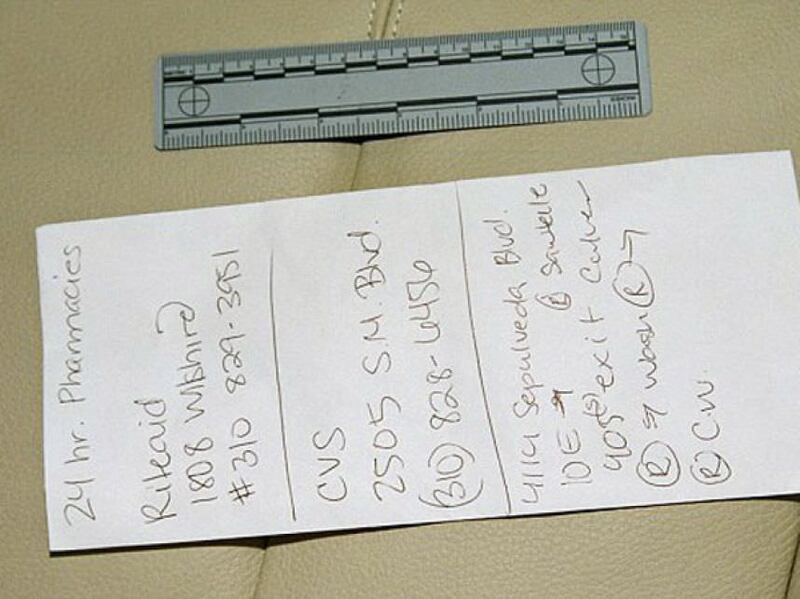 24 hr. Pharmacies
Riteaid
1808 Wilshire
#310 829-3951
CVS
2505 S.M. Blvd.
(310) 828-6456
4114 Sepulveda Blvd.
10E → R Sawtelle
405(S) exit Culver
R → Wash R →
R CW.